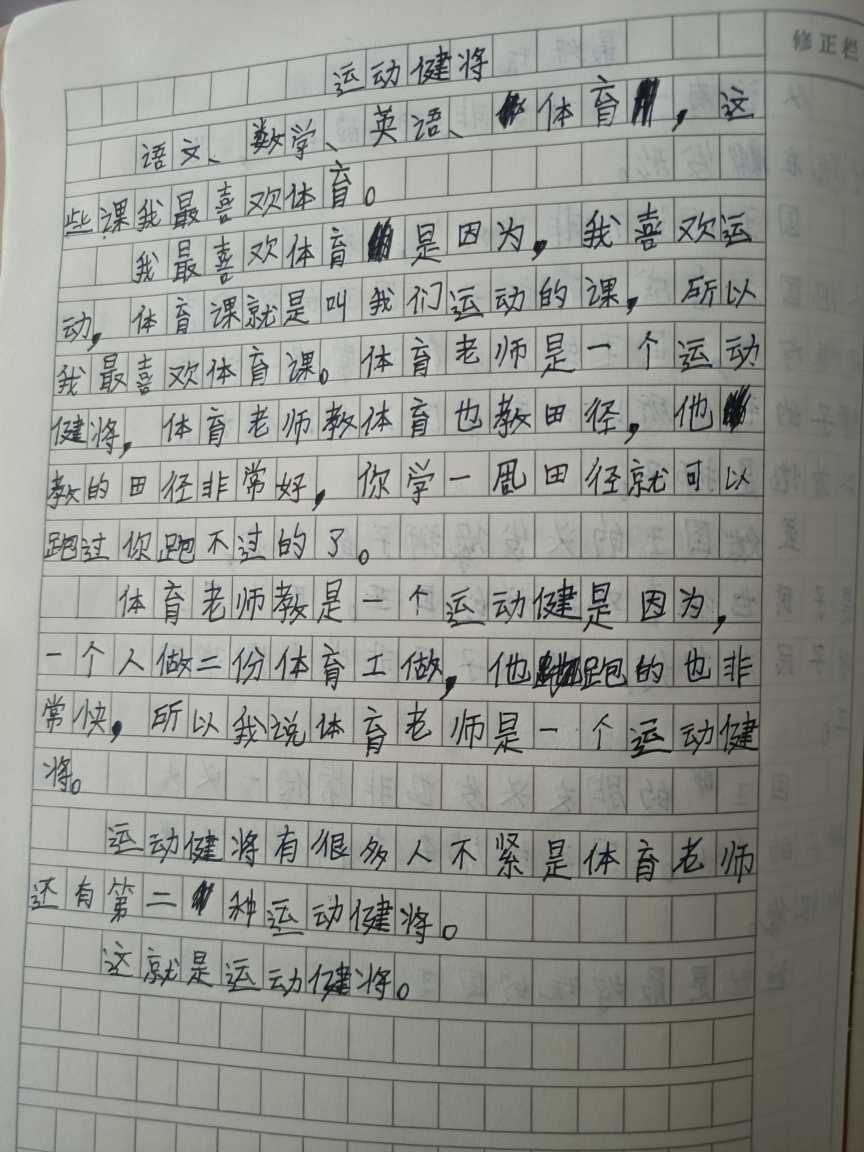 修正栏
运动健将
语文、数学、英语、体育，这
些课我最喜欢体育。
我最喜欢体育是因为，我喜欢运
动，体育课就是叫我们运动的课，所以
我最喜欢体育课。体育老师是一个运动
健将，体育老师教体育也教田径，他
教的田径非常好，你学一周田径就可以
跑过你跑不过的了。
体育老师教是一个运动健是因为，
一个人做二份体育工做，他跑的也非
常快，所以我说体育老师是一个运动健
将。
运动健将有很多人不紧是体育老师
还有第二种运动健将。
这就是运动健将。